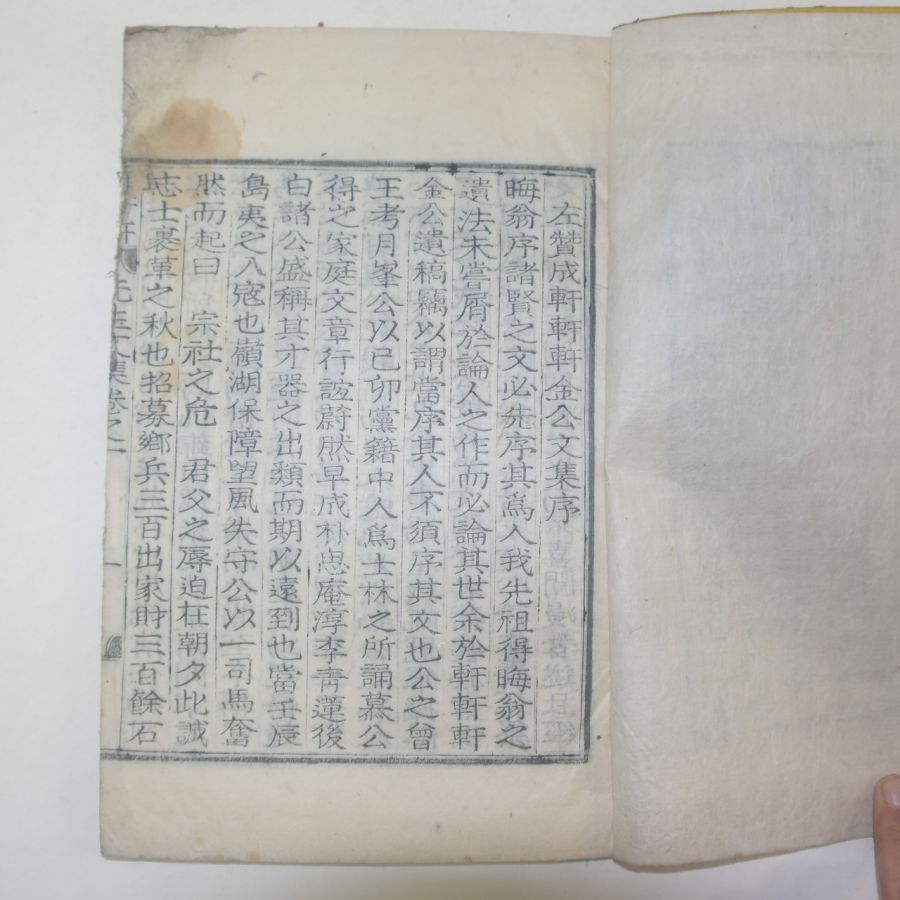 左贊成軒軒軒金公文集序
晦翁序諸賢之文必先序其爲人我先祖得晦翁之
遺法未嘗屑於論人之作而必論其世余於軒軒軒
金公遺稿竊以謂當序其人不須序其文也公之曾
王考月峯公以已卯黨籍中人爲士林之所誦慕公
得之家庭文章行誼蔚然早成朴思庵淳李靑蓮後
白諸公盛稱其才器之出類而期以遠到也當壬辰
島夷之入寇也嶺湖保障望風失守公以一司馬奮
然而起曰 宗社之危 君父之辱迫在朝夕此誠
志士裹革之秋也招募鄕兵三百出家財三百餘石
軒 先生文集卷之一 一